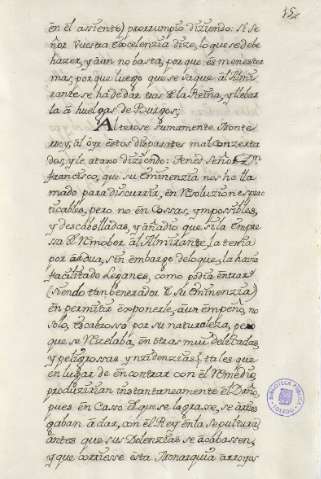 152
en el asiento) prorrumpio diziendo: Si Se
ñor Vuestra Excelencia dize, lo que se debe
hazer, y aun no basta, por que es menester
mas, por que luego que se saque al Almi
rante se ha de dar tras la Reina, y llebar
la a huelgas de Burgos;
Alterose sumamente Monte
rrey, al oyr estos disparates mal conzerta
dos, y le atajo diziendo: tened Señor Dn.
francisco, que su Eminencia nos ha lla
mado para discurrir, en Resoluciones prac
ticables, pero no en Cossas, ymposibles,
y descabelladas, y añadio que si la Empre
ssa de Remober al Almirante, la tenia
por ardua, sin embargo de lo que, la havia
facilitado Leganes, como podia entrar
(siendo tan benerador de Su Eminencia)
en permitir exponerle, a un empeño, no
solo, escabroso por su naturaleza, pero
que se Rozaba, en otras muy delicadas,
y peligrossas yncidencias, tales que
en lugar de encontrar con el Remedio
produzirian instantaneamente el Daño,
pues en Caso de que se lograsse, se aven
gaban a dar, con el Rey en la Sepultura
antes que sus Dolencias se acabassen,
y que corriesse esta Monarquia arroyos
BIBLIOTECA PUBLICA
TOLEDO